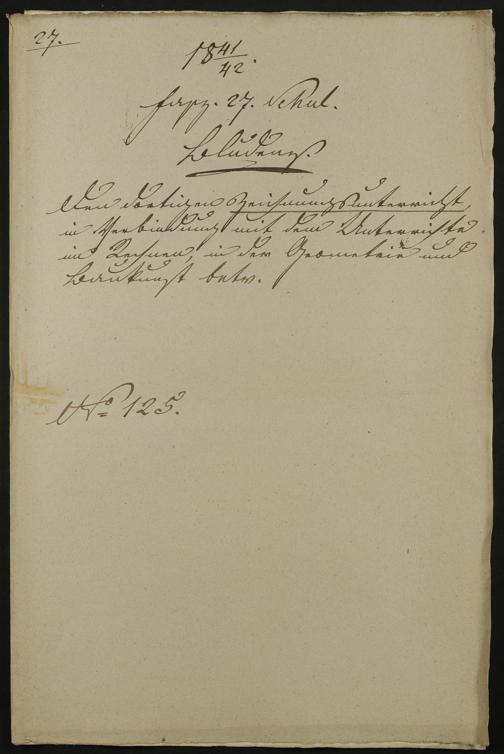 27.
18 41/42.
Fasz. 27. Schul.
Bludenz.
Den dortigen Zeichnungsunterricht,
in Verbindung mit dem Unterrichte
im Rechnen, in der Geometrie und
Baukunst betr.
No 125.